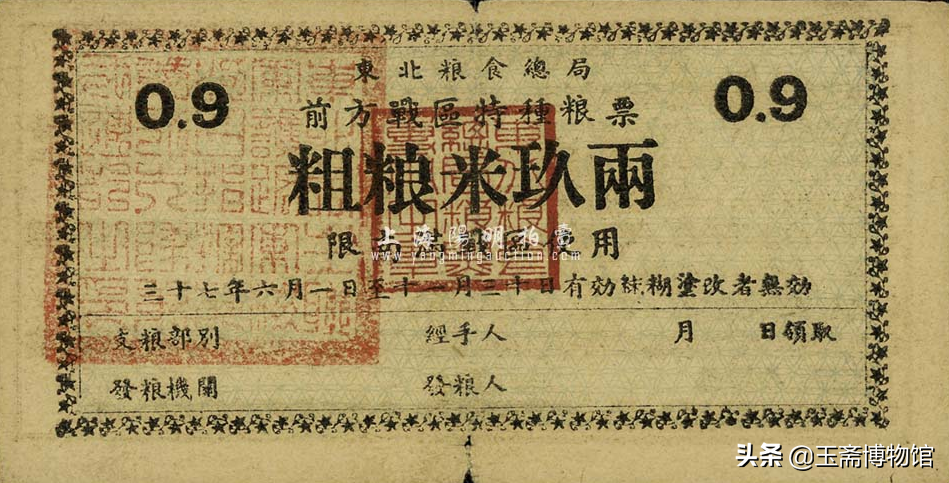 東北粮食總局
0.9 前方戰區特種粮票 0.9
粗粮米玖兩
限 用
上海陽明拍賣
www.yangmingauction.com
三十七年六月一日至十一月三十日有効 糊塗改者無効
支粮部別 經手人 月 日領取
發粮機関 發粮人
头条 @玉斋博物馆